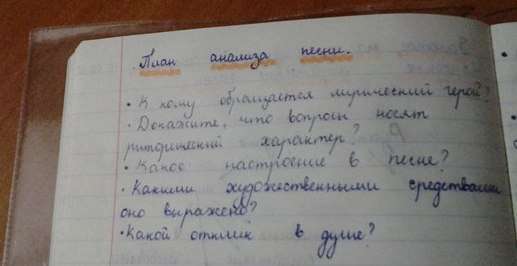 План анализа песни.
• К кому обращается лирический герой?
• Докажите, что вопросы носят
риторический характер?
• Какое настроение в песне?
• Какими художественными средствами
оно выражено?
• Какой отклик в душе?